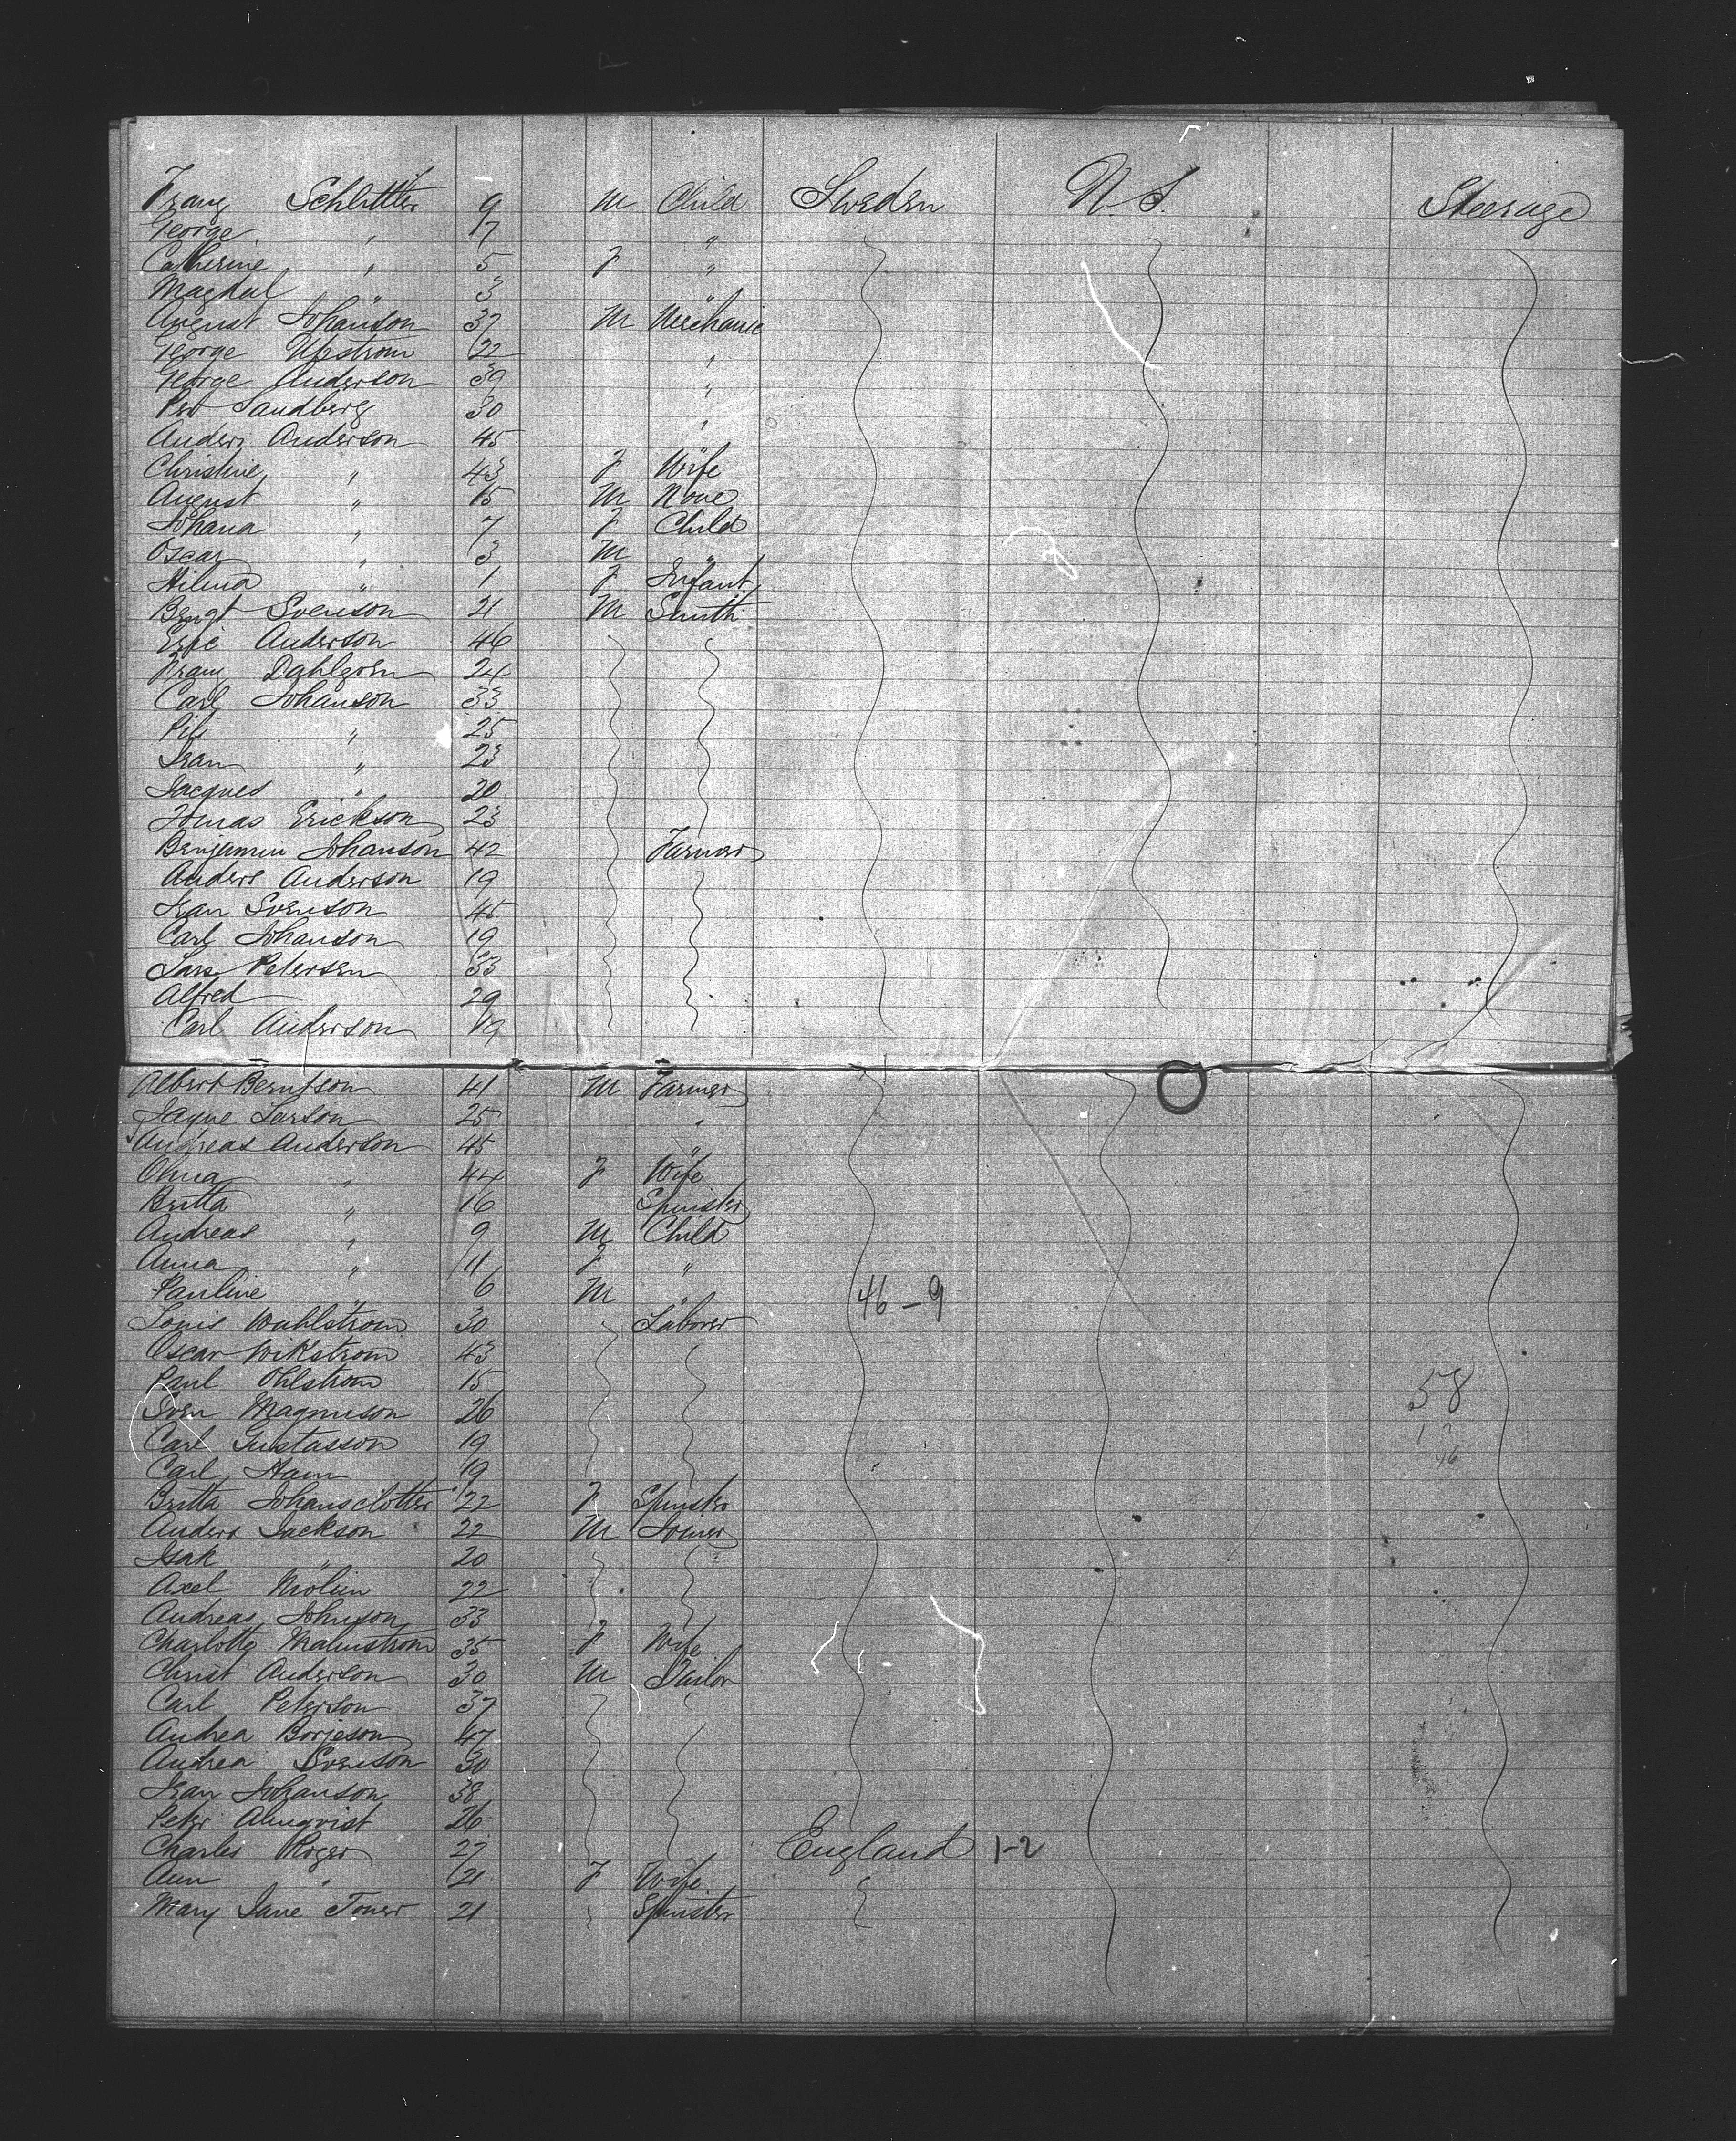 Franz Schlittler 9 M Child Sweden U.S. Steerage
George " 7 "
Catherine " 5 F "
Magdal " 3 "
August Johanson 37 M Mechanic
George Upstrom 22 "
George Anderson 39 "
Per Sandberg 30
Anders Anderson 45 "
Christine " 43 F Wife
August " 15 M None
Johana " 7 F Child
Oscar " 3 M "
Hilma " 1 F Infant
Bengt Svenson 21 M Smith
Eric Anderson 46
Franz Dahlgren 24
Carl Johanson 33
Pil " 25
Jean " 23
Jacques " 20
Jonas Erickson 23
Benjamin Johanson 42 Farmer
Anders Anderson 19
Jean Svenson 45
Carl Johanson 19
Lars Petersen 33
Alfred 29
Carl Anderson 19
Albert Berntson 41 M Farmer
Larson 25 "
Andreas Anderson 45 "
" 44 F Wife
Britta " 16 Spinster
Andreas " 9 M Child
Anna " 11 F "
Pauline " 6 M " 46-9
Louis Wahlstrom 30 Laborer
Oscar Wikstrom 43
Paul Ohlstrom 15 58
Sven Magnuson 26
Carl Gustasson 19
Carl Ham 19
Britta Johansdotter 22 F Spinster
Anders Jackson 22 M Joiner
Isak " 20
Axel Molin 22
Andreas Johnson 33
Charlotte Malmstrom 35 F Wife
Christ Anderson 30 M Tailor
Carl Peterson 37
Andrea Borjeson 47
Andrea Svenson 30
Jean Johanson 38
Peter Almqvist 26
Charles Roger 27 England 1-2
Ann " 21 F Wife
Mary Jane Toner 21 Spinster